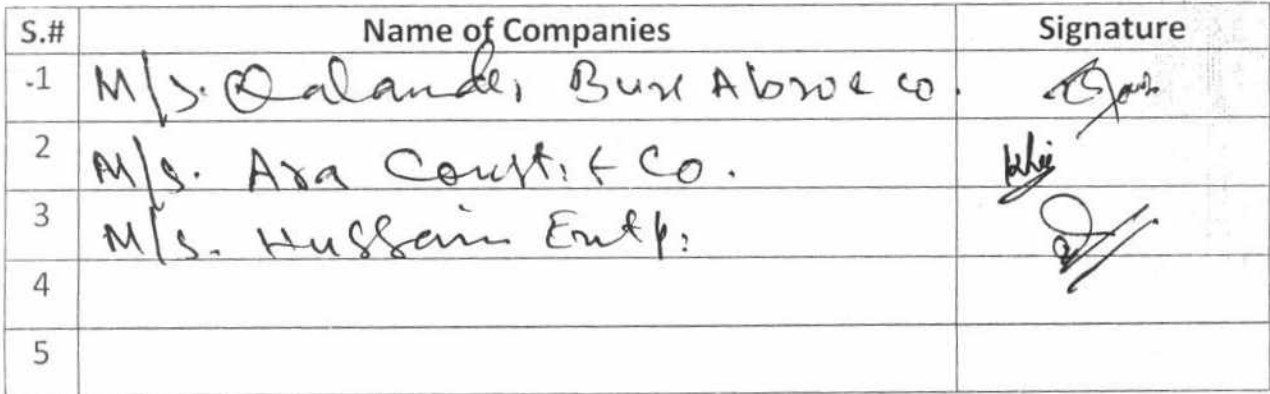 S.# Name of Companies Signature
1 M/s. Qalander Bux Abro & Co.
2 M/s. Ara Const: & Co.
3 M/s. Hussain Entp:
4
5